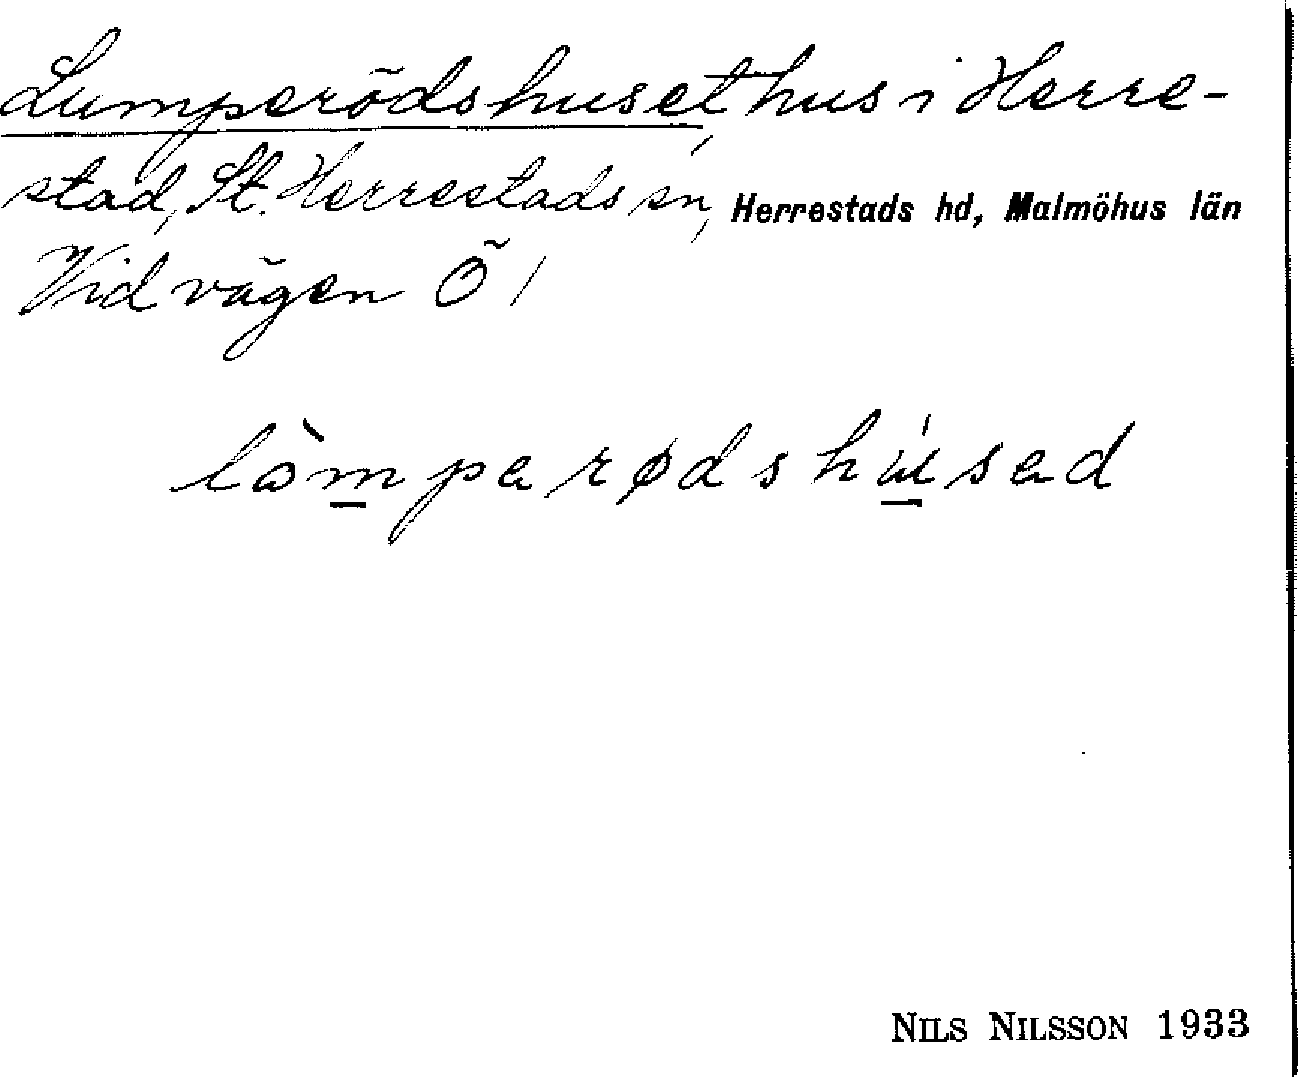 Lumperödshuset, hus i Herre-
stad, St. Herrestads sn, Herrestads hd, Malmöhus län
Vid vägen Ö /
lòmparødshúsad
NILS NILSSON 1933